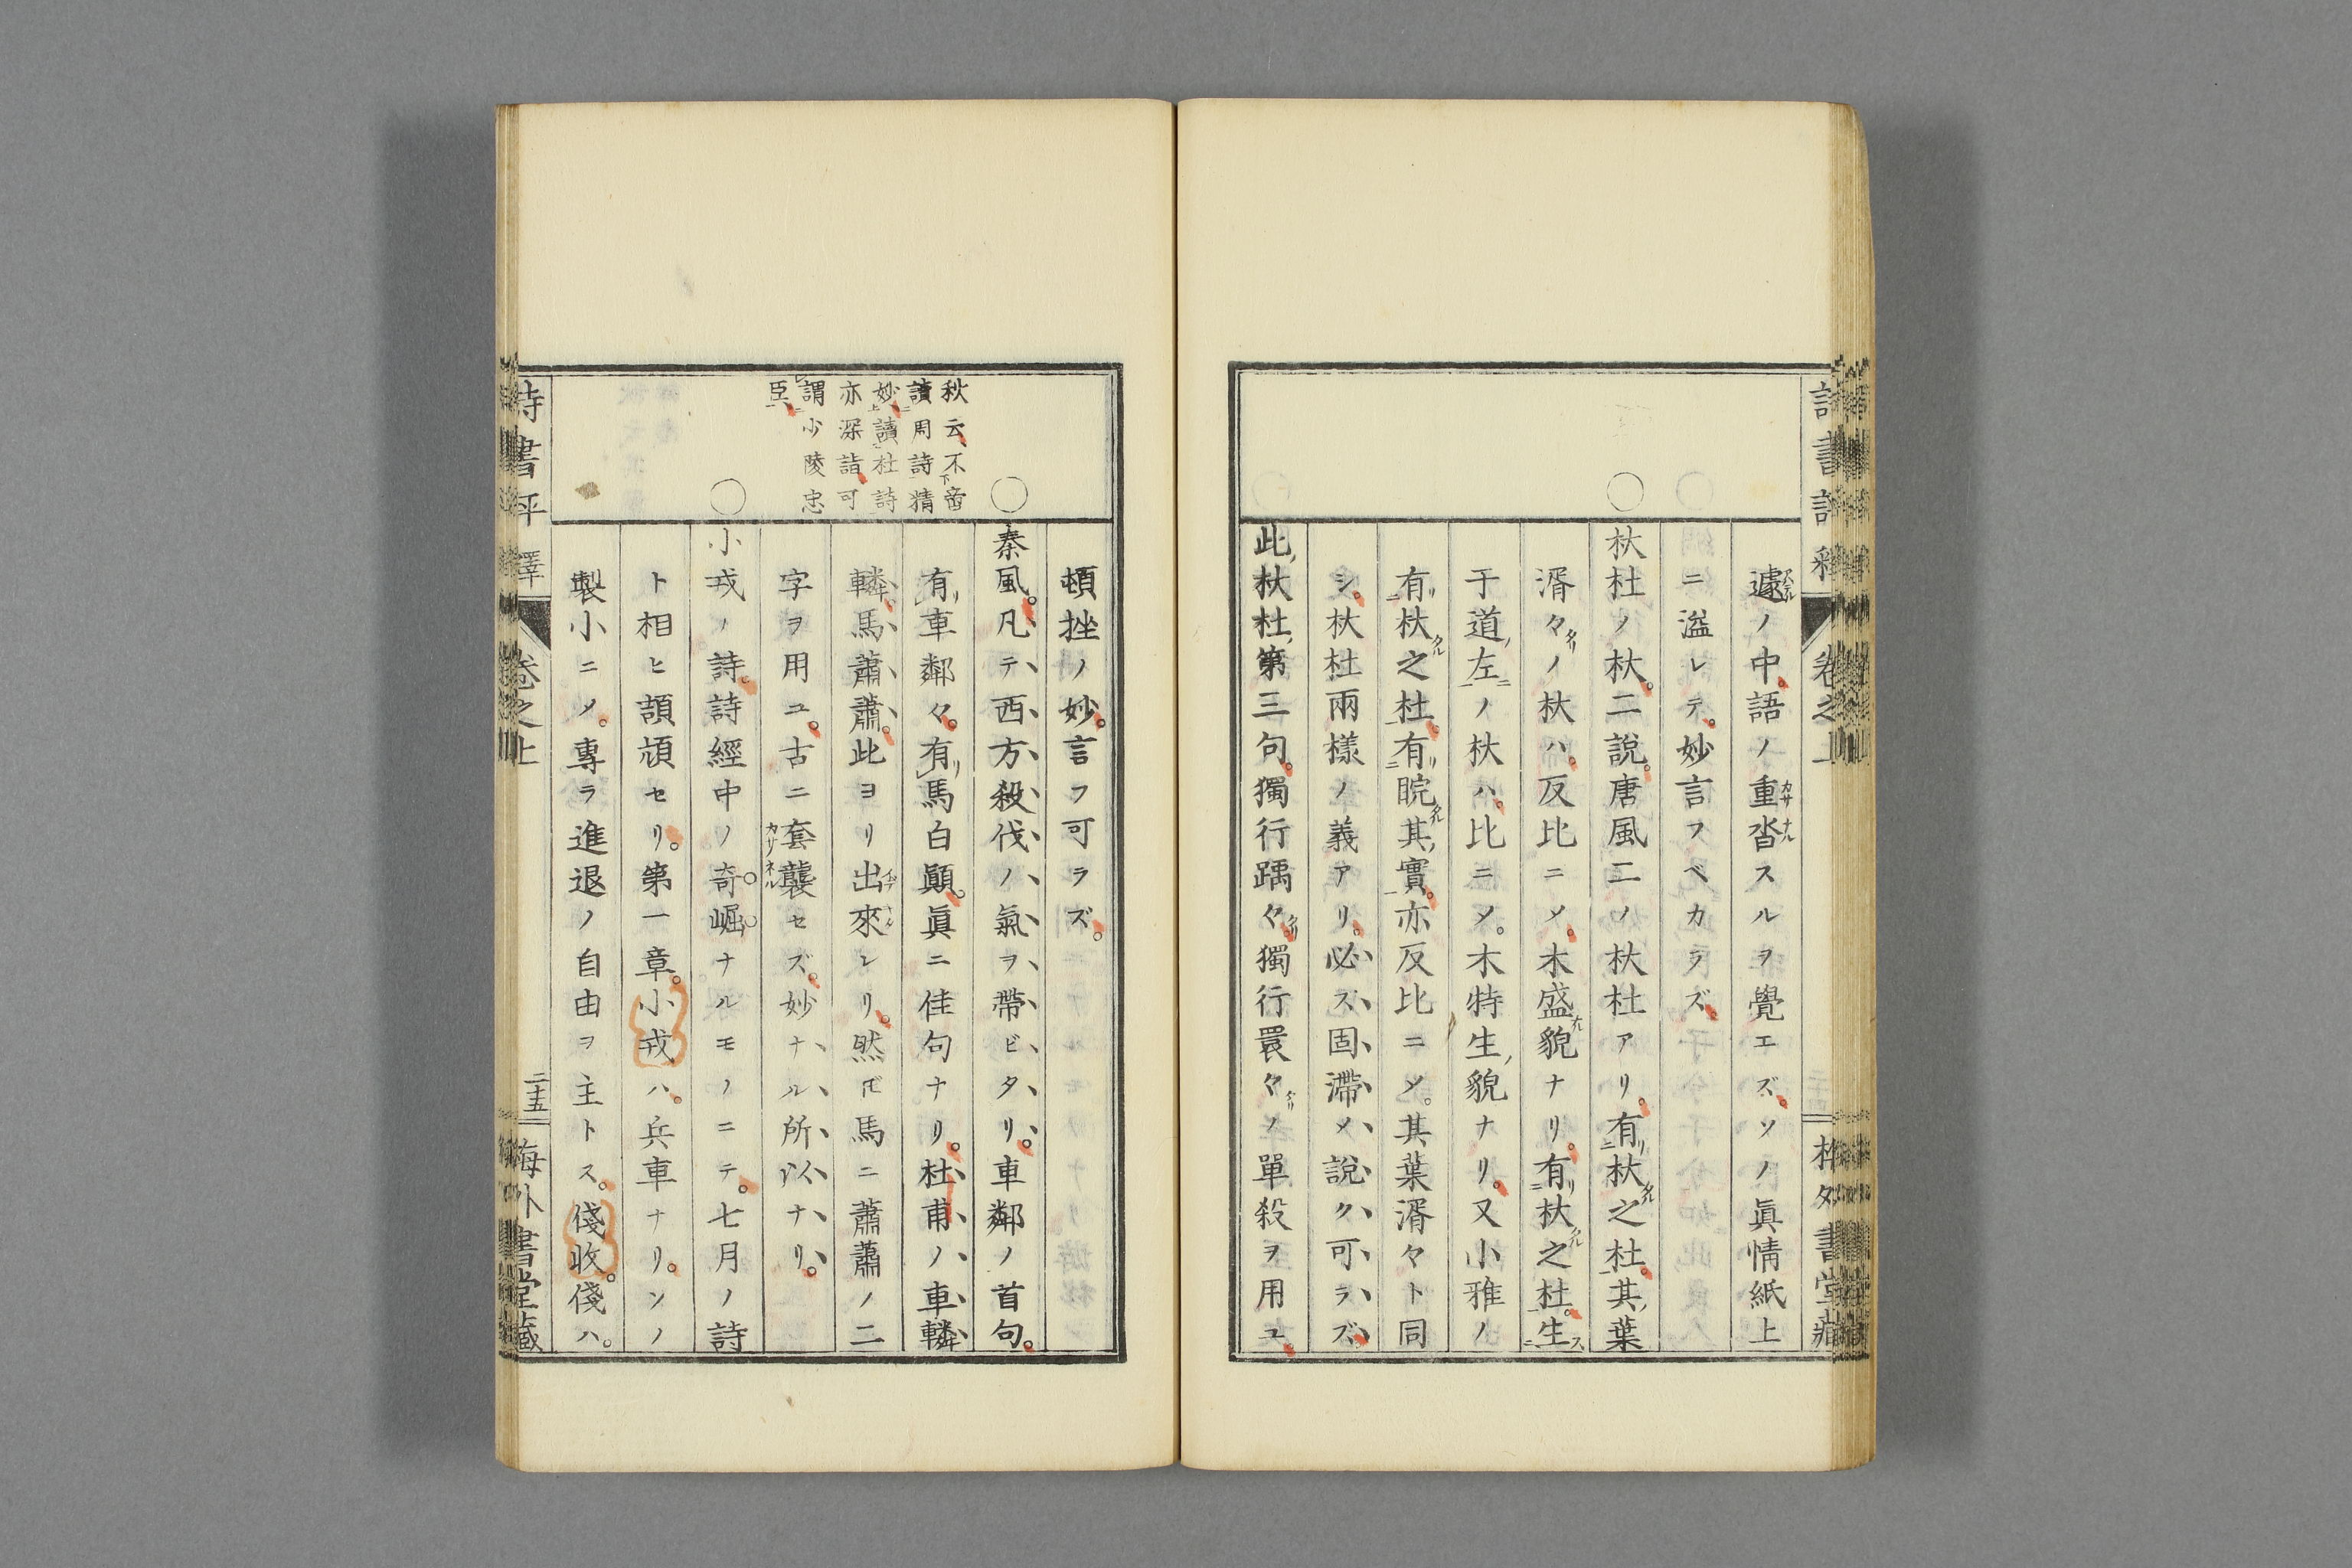 遽ノ中。語ノ重沓スルヲ覺エズ。ソノ眞情紙上
ニ溢レテ。妙言フベカラズ。
○杕杜ノ杕。二說。唐風二ノ杕杜アリ。有杕之杜。其葉
湑々ノ杕ハ。反比ニメ。木盛貌ナリ。有杕之杜。生
于道左ノ杕ハ。比ニメ。木特生貌ナリ。又小雅ノ
有杕之杜。有睆其實。亦反比ニメ。其葉湑々ト同
シ。杕杜兩樣ノ義アリ。必ズ固滯メ說ク可ラズ。
此杕杜第三句。獨行踽々獨行睘々ノ單殺ヲ用ユ。
頓挫ノ妙。言フ可ラズ。
○秦風。凡テ西方殺伐ノ氣ヲ帶ビタリ。車鄰ノ首句。
有車鄰々。有馬白顚。眞ニ佳句ナリ。杜甫ノ車轔
轔。馬蕭蕭。此ヨリ出來レリ。然𪜈馬ニ蕭蕭ノ二
字ヲ用ユ。古ニ套襲セズ。妙ナル所以ナリ。
秋云不啻
讀周詩精
妙讀杜詩
亦深詣可
謂少陵忠
臣
○小戎ノ詩。詩經中ノ奇崛ナルモノニテ。七月ノ詩
ト相ヒ頡頏セリ。第一章。小戎ハ。兵車ナリ。ソノ
製小ニメ。專ラ進退ノ自由ヲ主トス。俴收。俴ハ。
詩書評釋 卷之上 二十五 海外書堂藏